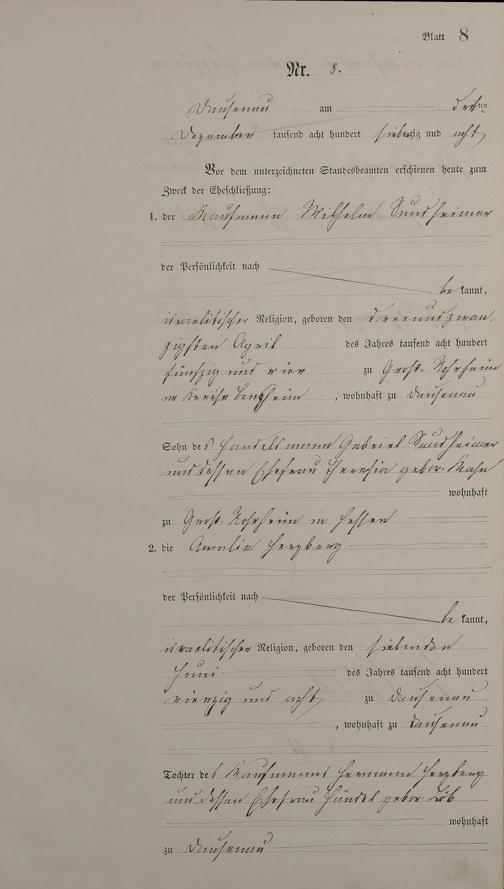 Blatt 8
Nr. 8.
Dausenau am
Dezember tausend acht hundert siebenzig und acht
Vor dem unterzeichneten Standesbeamten erschienen heute zum
Zweck der Eheschließung:
1. der Kaufmann Wilhelm Sundheimer
der Persönlichkeit nach
be kannt,
israelitischer Religion, geboren den dreiundzwan
zigsten April des Jahres tausend acht hundert
fünfzig und vier zu Groß-Rohrheim
Kreise Bensheim, wohnhaft zu Dausenau
Sohn des Handelsmann Gabriel Sundheimer
und dessen Ehefrau Theresia gebor.
wohnhaft
zu Groß-Rohrheim in Hessen
2. die Amalie Herzberg
der Persönlichkeit nach
be kannt,
israelitischer Religion, geboren den siebenten
Juni des Jahres tausend acht hundert
vierzig und acht zu Dausenau
, wohnhaft zu Dausenau
Tochter des Kaufmanns Hermann Herzberg
und dessen Ehefrau Händel gebor. Löb
wohnhaft
zu Dausenau